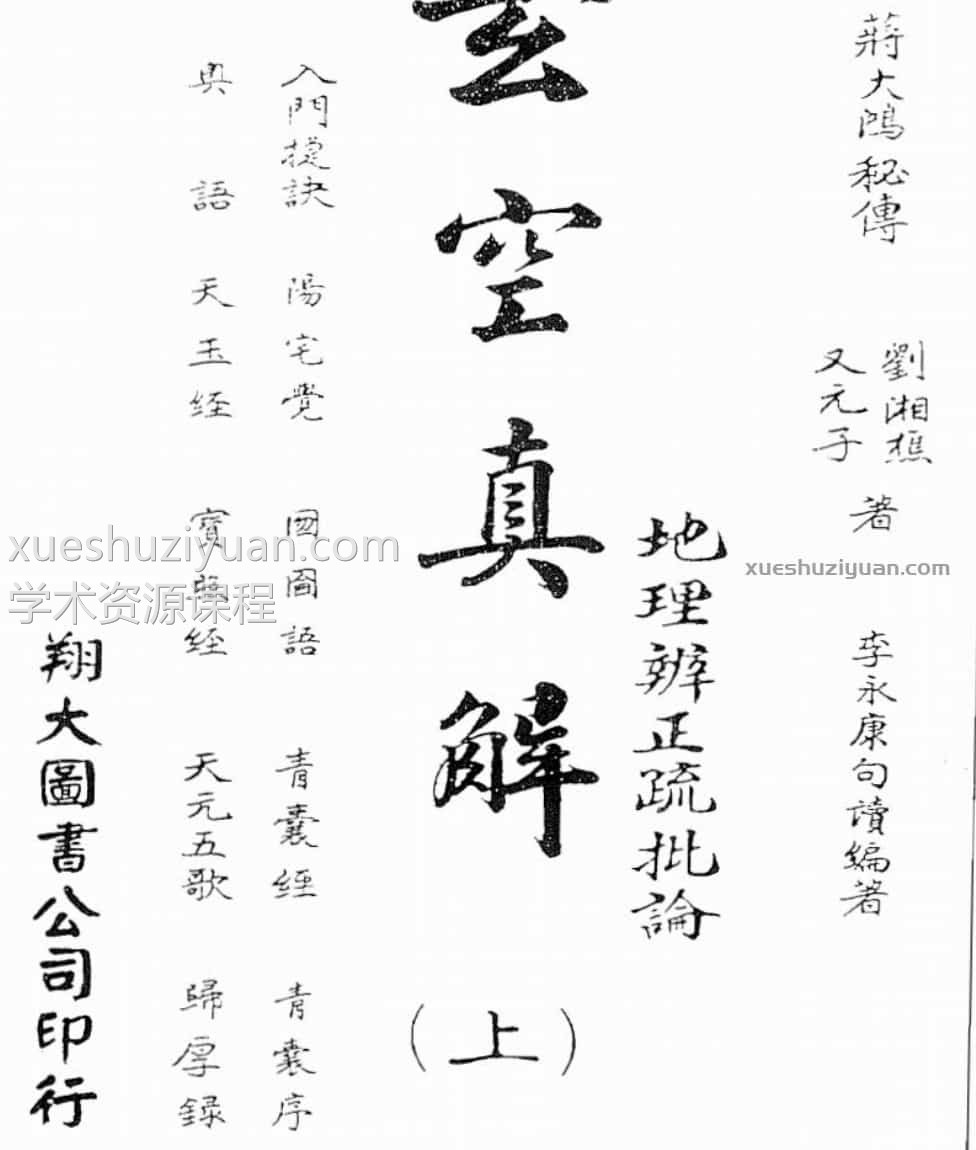 蔣大鴻秘傳
劉湘樵
又元子
著
李永康句讀編著
地理辨正疏批論
玄空真解
(上)
入門捷訣 陽宅覺 囯圖語 青囊經 青囊序
奥語 天玉經 寳照經 天元五歌 歸厚録
翔大圖書公司印行
xueshuziyuan.com
学术资源课程
xueshuziyuan.com